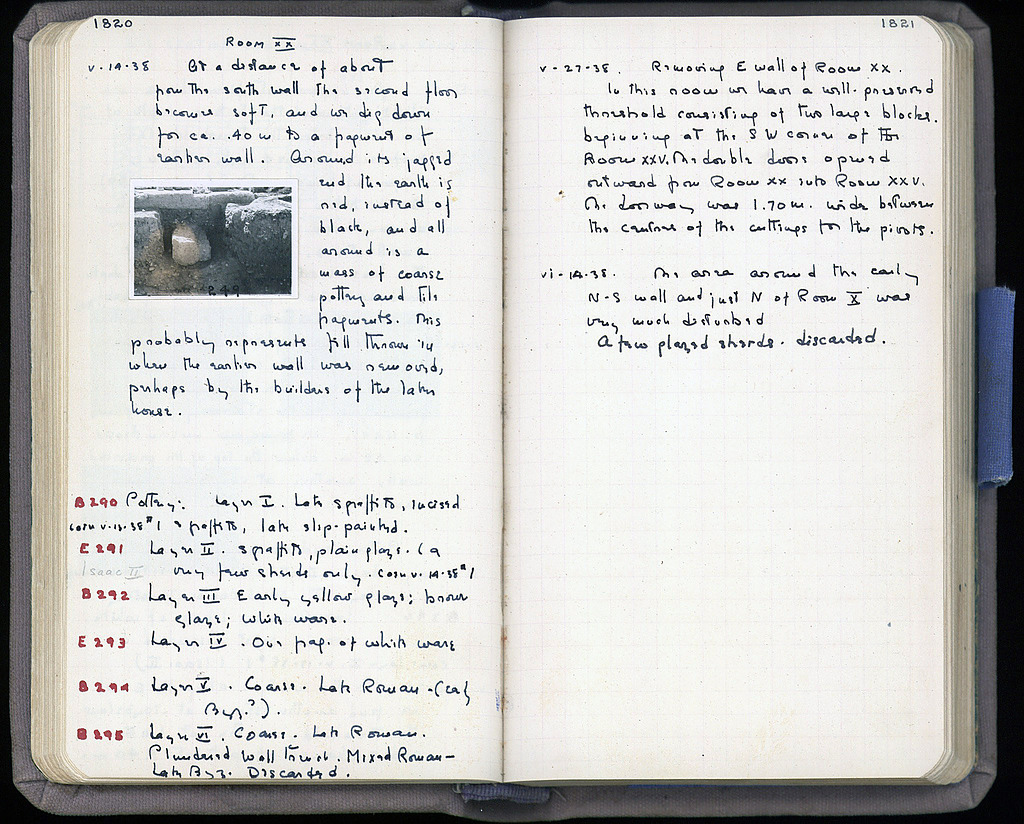 1820
ROOM XX
V-14-38 At a distance of about
from the south wall the second floor
becomes soft, and we dig down
for ca. .40 m to a fragment of
earlier wall. Around its jagged
end the earth is
red, instead of
black, and all
around is a
mass of coarse
pottery and tile
fragments. This
probably represents fill thrown in
where the earlier wall was removed,
perhaps by the builders of the later
house.
249
B290 Pottery: Layer I. Late sgraffito, incised
coin V-13-38 #1 sgraffito, late slip-painted.
E291 Layer II. Sgraffito, plain glaze. (a
Isaac II very few sherds only. Coin V-14-38 #1
B292 Layer III Early yellow glaze; brown
glaze; white ware.
E293 Layer IV. One frag. of white ware
B294 Layer V. Coarse. Late Roman-(early
Byz.?).
B295 Layer VI. Coarse. Late Roman.
Plundered Wall Trench. Mixed Roman-
Late Byz. Discarded.
1821
V-27-38. Removing E wall of Room XX.
In this room we have a well-preserved
threshold consisting of two large blocks.
beginning at the SW corner of
Room XXV. The double doors opened
outward from Room XX into Room XXV.
The doorway was 1.70 m. wide between
the centres of the cuttings for the pivots.
VI-1A-38. The area around the early
N-S wall and just N of Room X was
very much disturbed
A few glazed sherds - discarded.